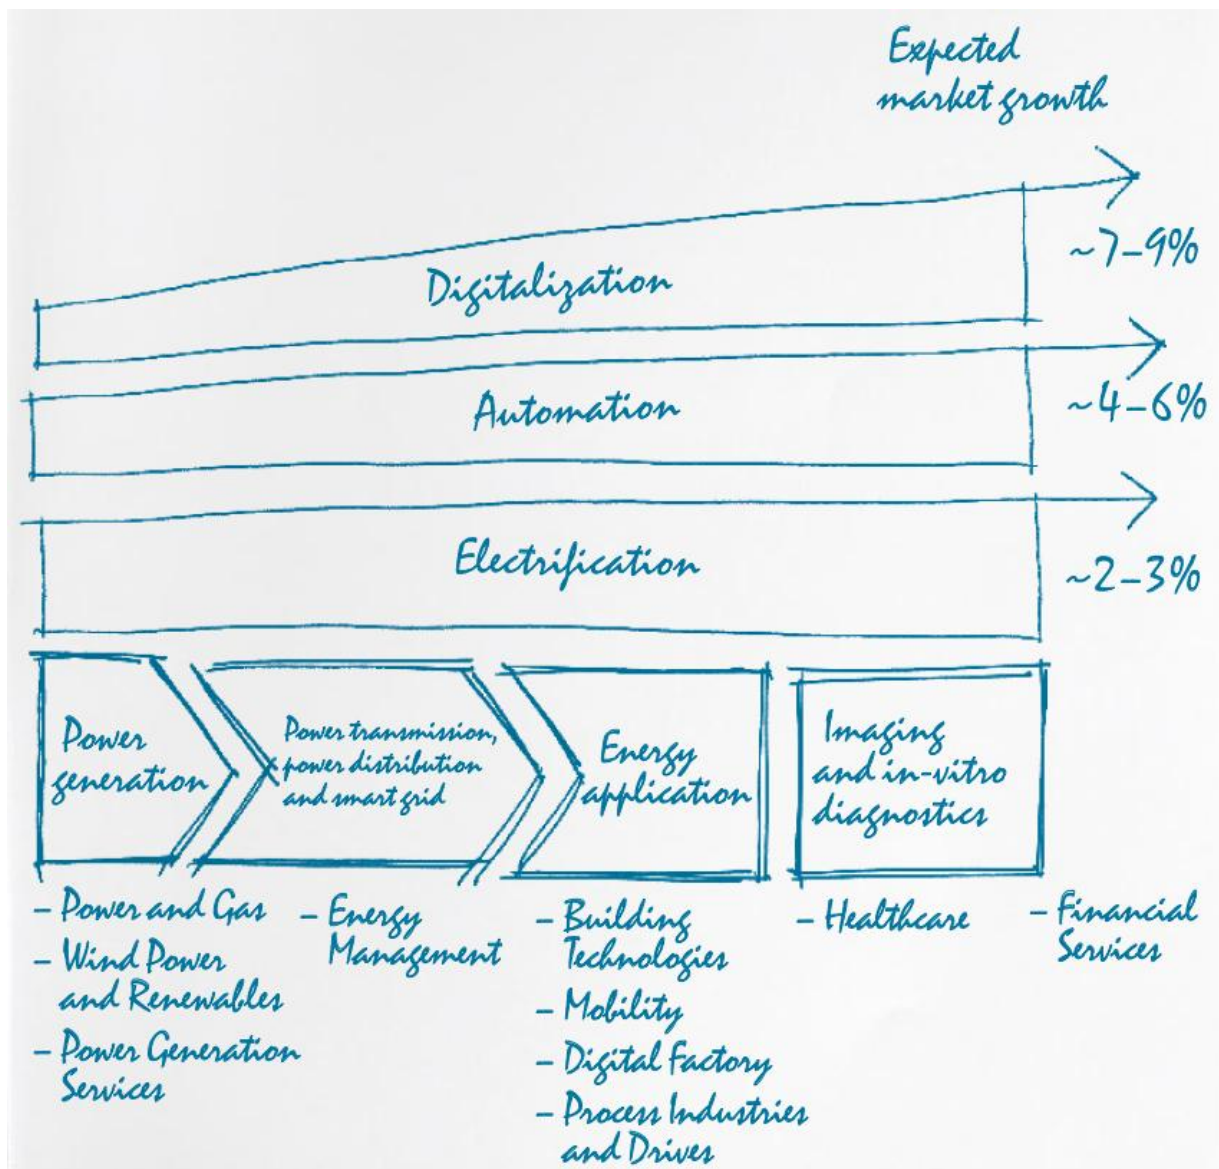 Expected
market growth
~7–9%
Digitalization
Automation
~4–6%
Electrification
~2–3%
Power
generation
Power transmission,
power distribution
and smart grid
Energy
application
Imaging
and in-vitro
diagnostics
– Power and Gas
– Wind Power
and Renewables
– Power Generation
Services
– Energy
Management
– Building
Technologies
– Mobility
– Digital Factory
– Process Industries
and Drives
– Healthcare
– Financial
Services